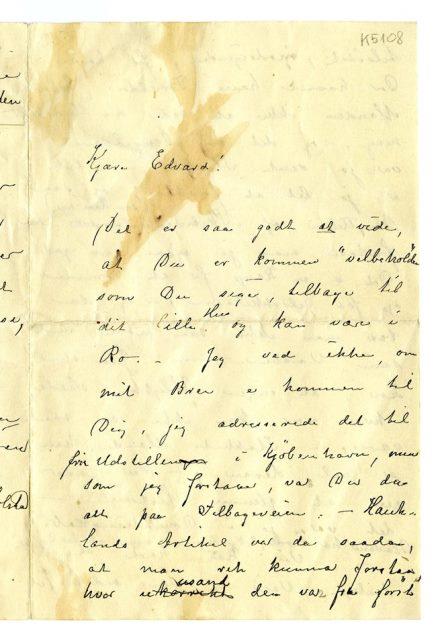 K5108
Kjære Edvard!
Det er saa godt at vide,
at Du er kommen "velbeholden"
som Du sige, tilbage til
dit lille Hus og kan være i
Ro. – Jeg ved ikke, om
mit Brev er kommen til
Dig, jeg adresserede det til
fru Udstillen i Kjöbenhavn, men
som jeg forstaar, var Du da
alt paa Tilbageveien. – Hauk-
lands Artikel var da saadan,
at man let kunne forstaa
hvor usand den var fra först